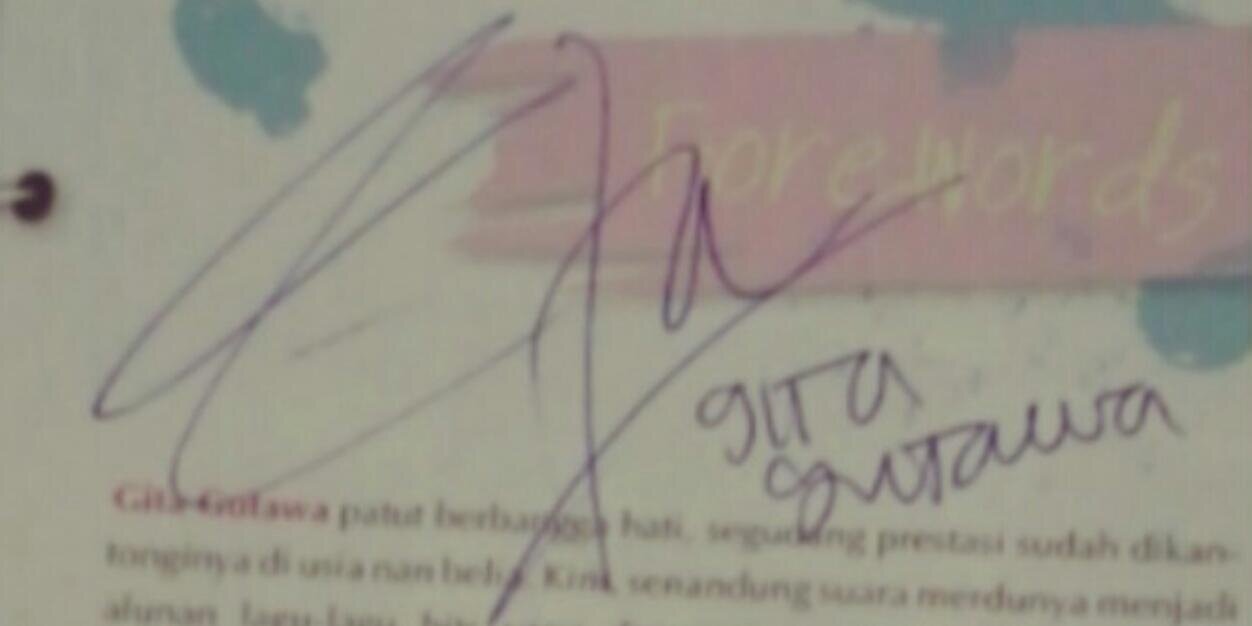 Forewords
gita
gutawa
Gita Gutawa patut berbangga hati, segudang prestasi sudah dikan-
tonginya di usia nan belia. Kini, senandung suara merdunya menjadi
alunan lagu-lagu hits